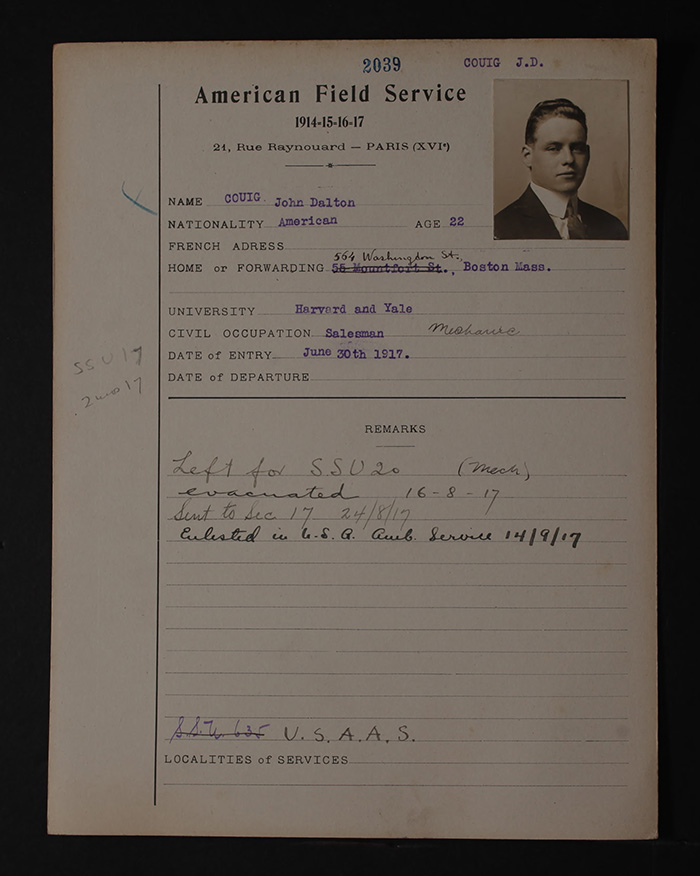 2039 COUIG J.D.
American Field Service
1914-15-16-17
21, Rue Raynouard — PARIS (XVIe)
NAME COUIG John Dalton
NATIONALITY American AGE 22
FRENCH ADRESS
564 Washington St.,
HOME or FORWARDING 55 Mountfort St., Boston Mass.
UNIVERSITY Harvard and Yale
CIVIL OCCUPATION Salesman Mechanic
DATE of ENTRY June 30th 1917.
DATE of DEPARTURE
SSU 17
2 mo 17
REMARKS
Left for SSU 20 (Mech)
evacuated 16-8-17
Sent to Sec 17 24/8/17
Enlisted in U.S.A. Amb. Service 14/9/17
S.S.U. 635 U.S.A.A.S.
LOCALITIES of SERVICES